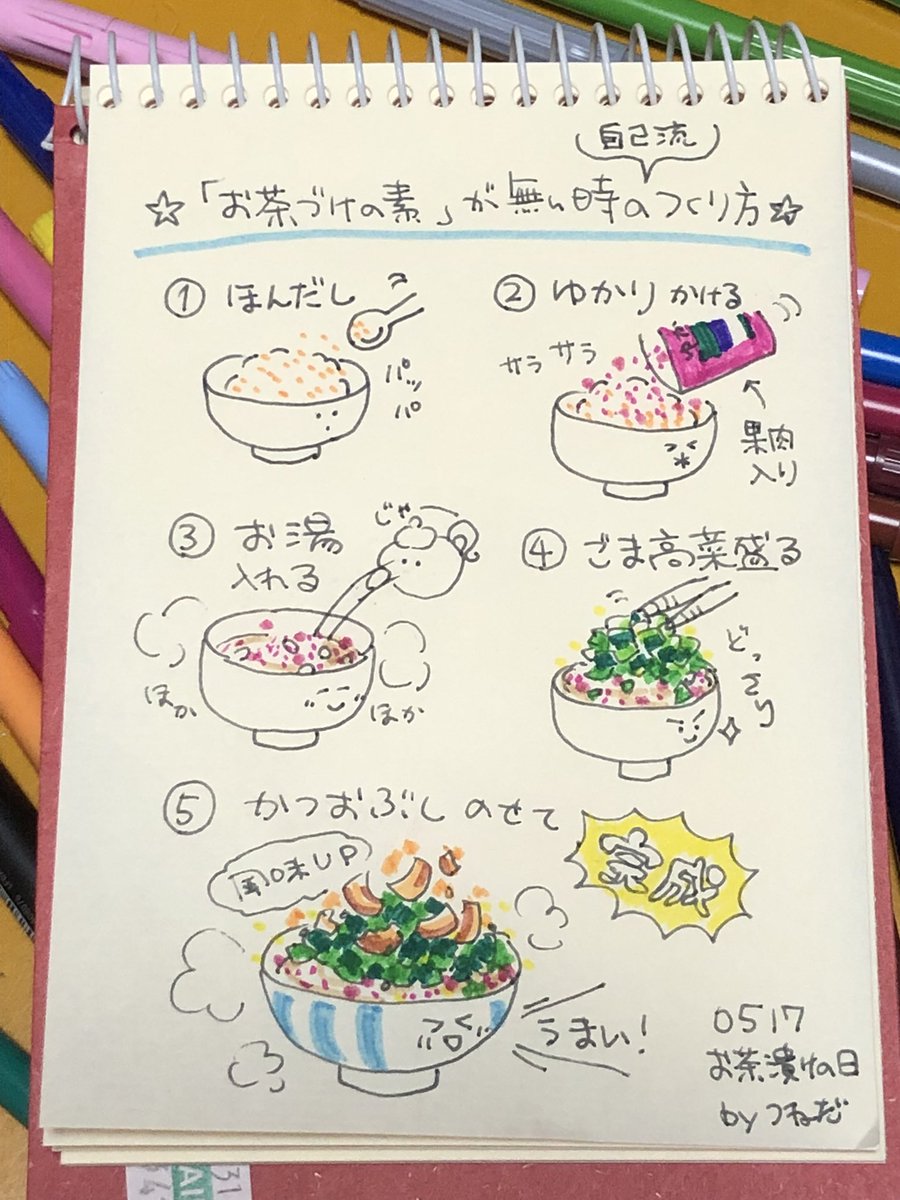 自己流
☆「お茶づけの素」が無い時のつくり方☆
① ほんだし
パッパ
② ゆかりかける
サラサラ
果肉
入り
③ お湯
入れる
じゃー
ほか
ほか
④ ごま高菜盛る
どっさり
⑤ かつおぶしのせて
完成
風味UP
うまい!
0517
お茶漬けの日
by つねだ